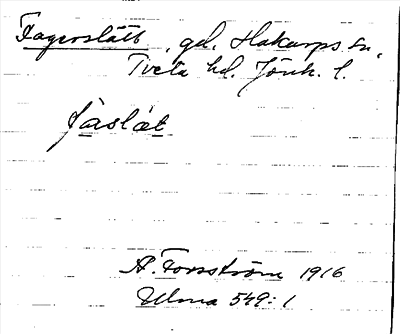 Fagerslätt, gd. Hakarps sn,
Tveta hd. Jönk. l.
fàrslæt
A. Forsström 1916
Ulma 549:1